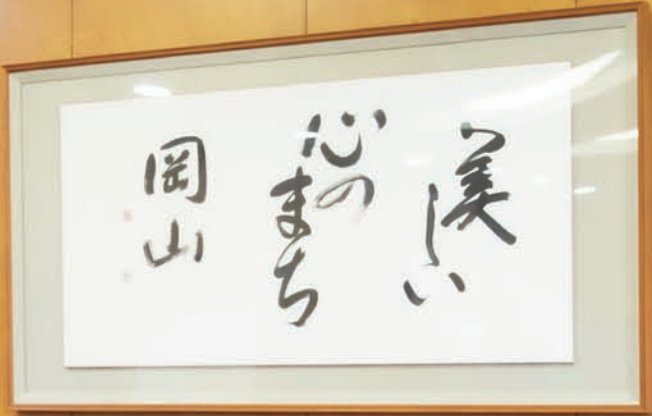 美しい
心の
まち
岡山